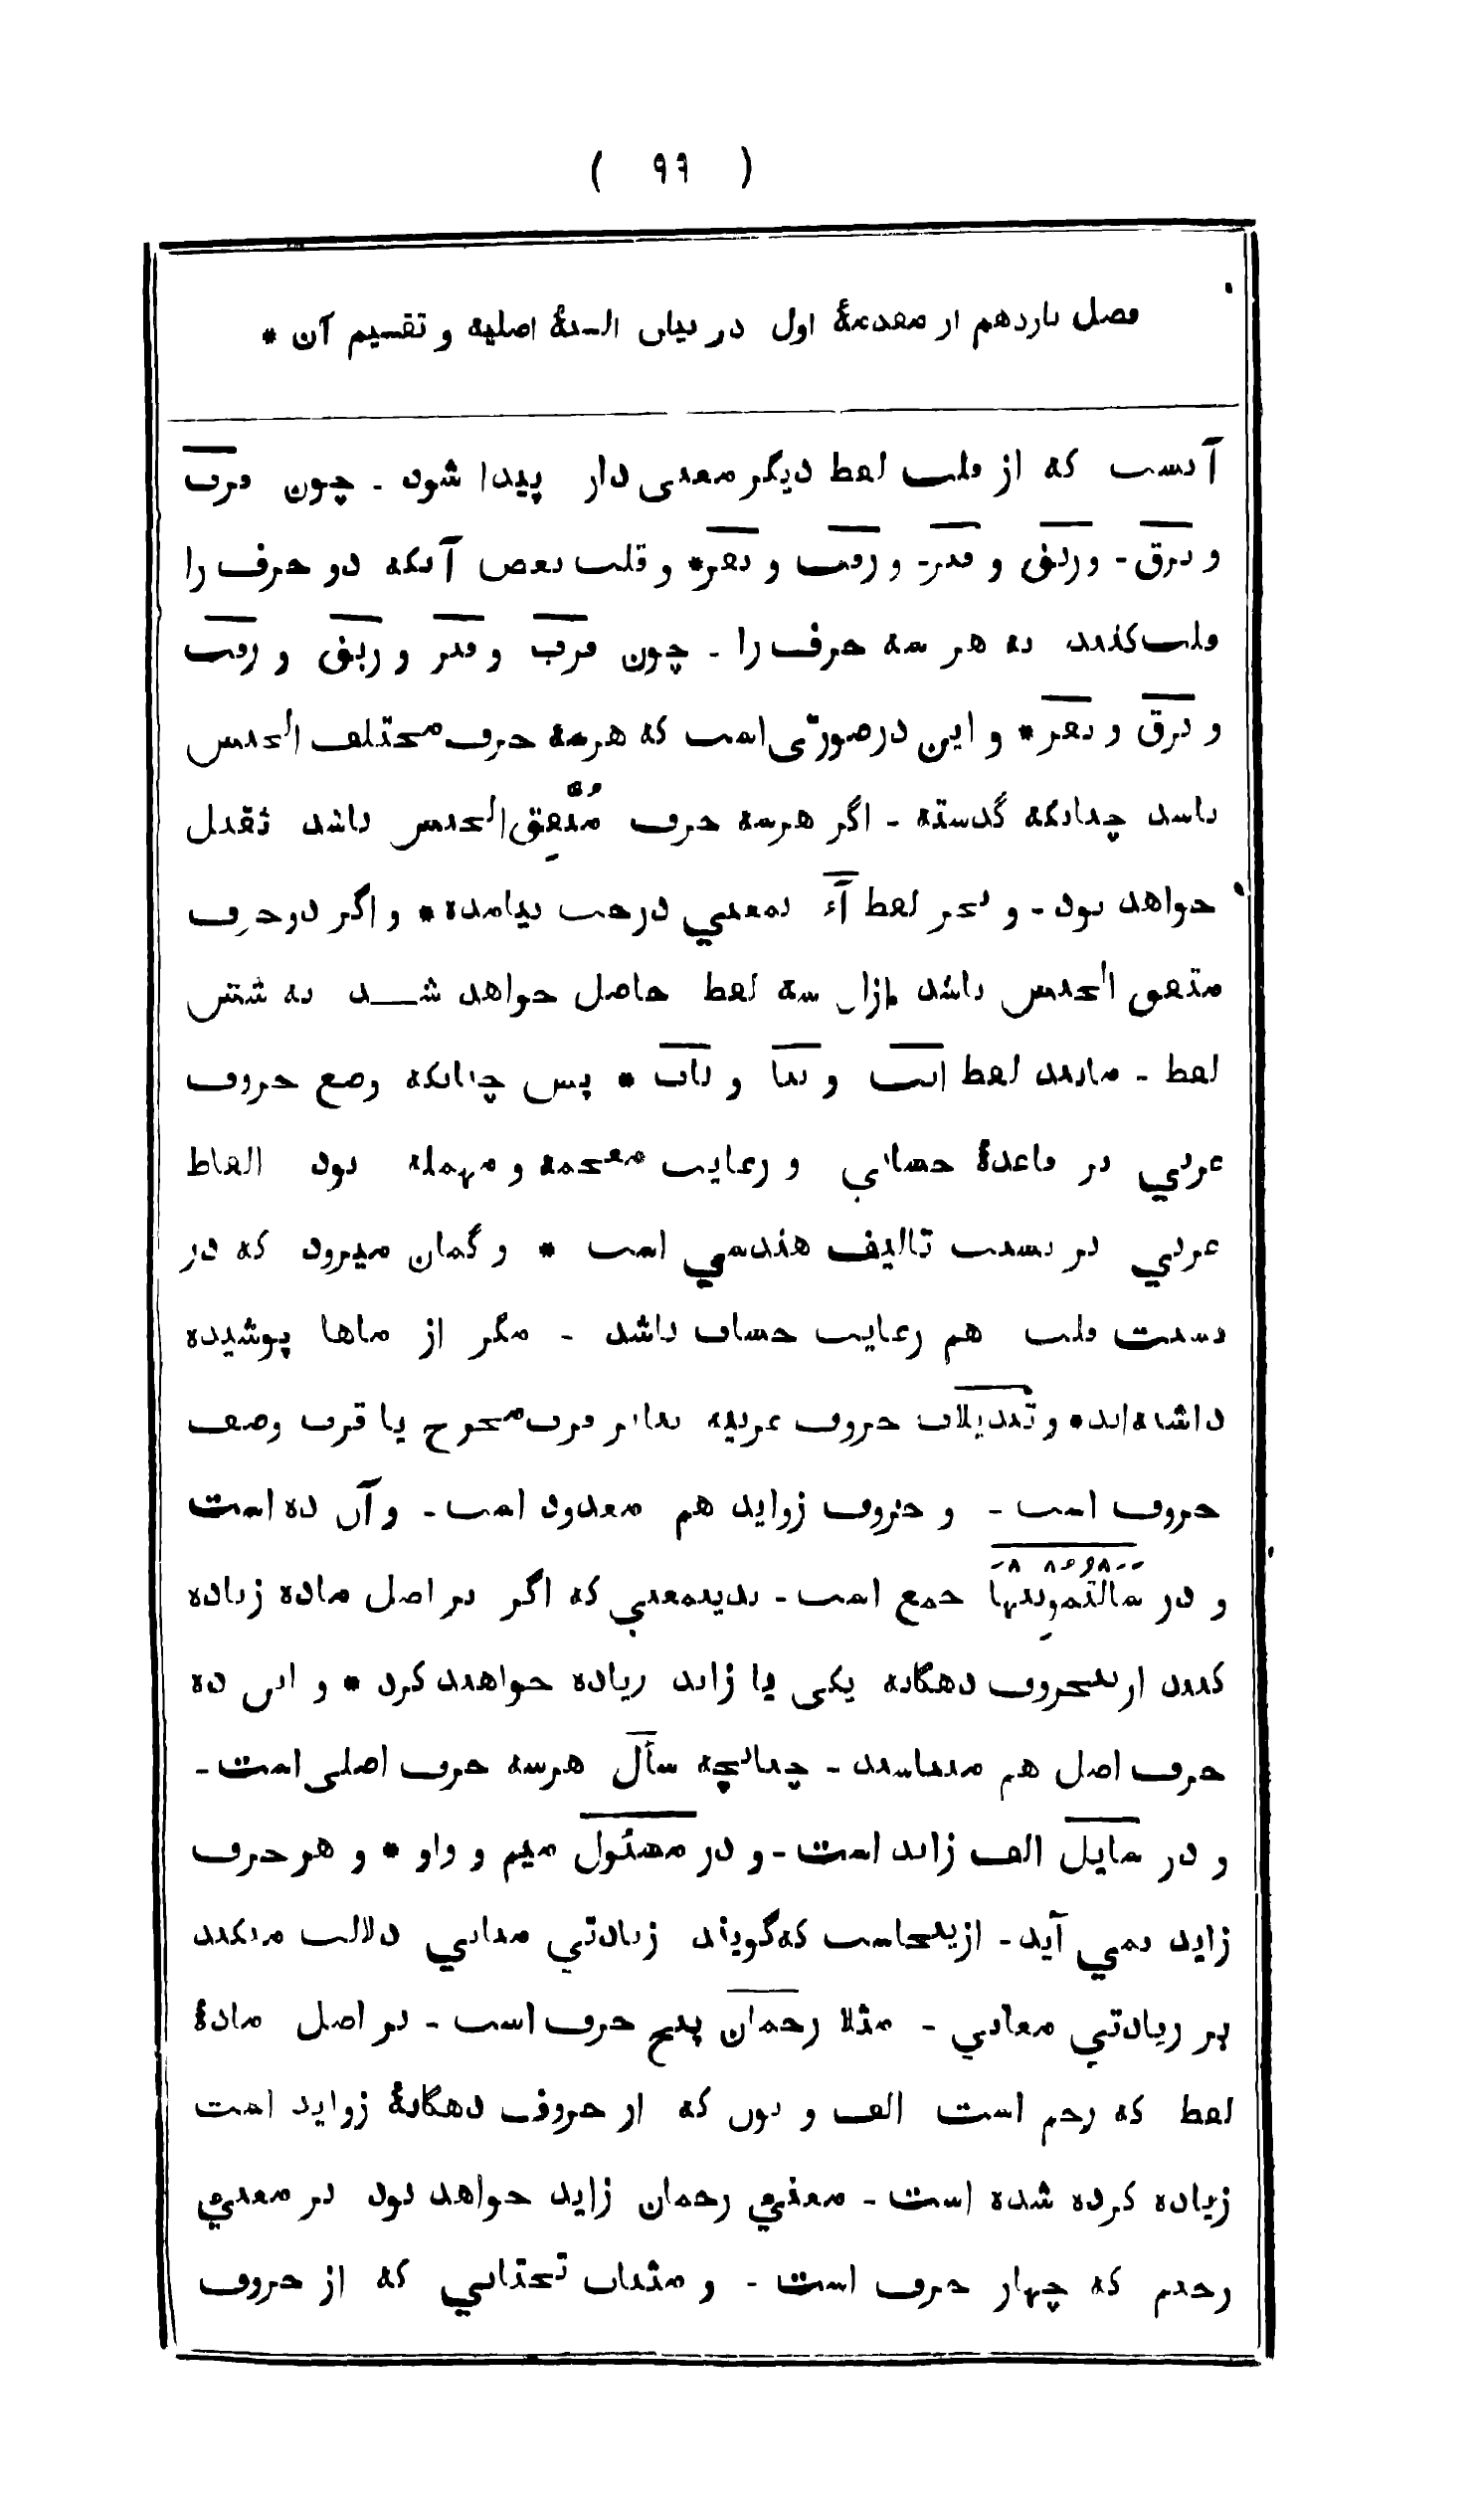 ( ٩٩ )
فصل یازدهم از مقدمهٔ اول در بیان السنهٔ اصلیه و تقسیم آن *
آنست که از قلب لفظ دیگر معنی دار پیدا شود - چون قرب
و برق - و ربق و قبر - و رقب و بقر * و قلب بعض آنکه دو حرف را
قلب کنند نه هر سه حرف را - چون قرب و قبر و ربق و رقب
و برق و بقر * و این درصورتی است که هرسه حرف مختلف الجنس
باشد چنانکه گذشته - اگر هرسه حرف متّفِق الجنس باشد ثقیل
خواهد بود - و بجز لفظ آء بمعنی درخت نیامده * و اگر دو حرف
متفق الجنس باشد ازان سه لفظ حاصل خواهد شد نه شش
لفظ - مانند لفظ و و باب * پس چنانکه وضع حروف
عربي بر قاعدهٔ حسابي و رعایت معجمه و مهمله بود الفاظ
عربي بر نسبت تالیف هندسي است * و گمان میرود که در
نسبت قلب هم رعایت حساب باشد - مگر از ماها پوشیده
داشته‌اند * و تبدیلات حروف عربیه بنابر قرب مخرج یا قرب وصف
حروف است - و حروف زواید هم معدود است - و آن ده است
و در سالتمونیها جمع است - بدینمعنی که اگر بر اصل ماده زیاده
کنند ازینحروف دهگانه یکی یا زاید زیاده خواهند کرد * و این ده
حرف اصل هم میباشند - چنانچه سأل هرسه حرف اصلی است -
و در سایل الف زاید است - و در مسئول میم و واو * و هر حرف
زاید نمي آید - ازینجاست که گویند زیادتي مباني دلالت میکند
بر زیادتي معاني - مثلا رحمان پنج حرف است - بر اصل مادهٔ
لفظ که رحم است الف و نون که از حروف دهگانهٔ زواید است
زیاده کرده شده است - معني رحمان زاید خواهد بود بر معني
رحیم که چهار حرف است - و مثنات تحتاني که از حروف